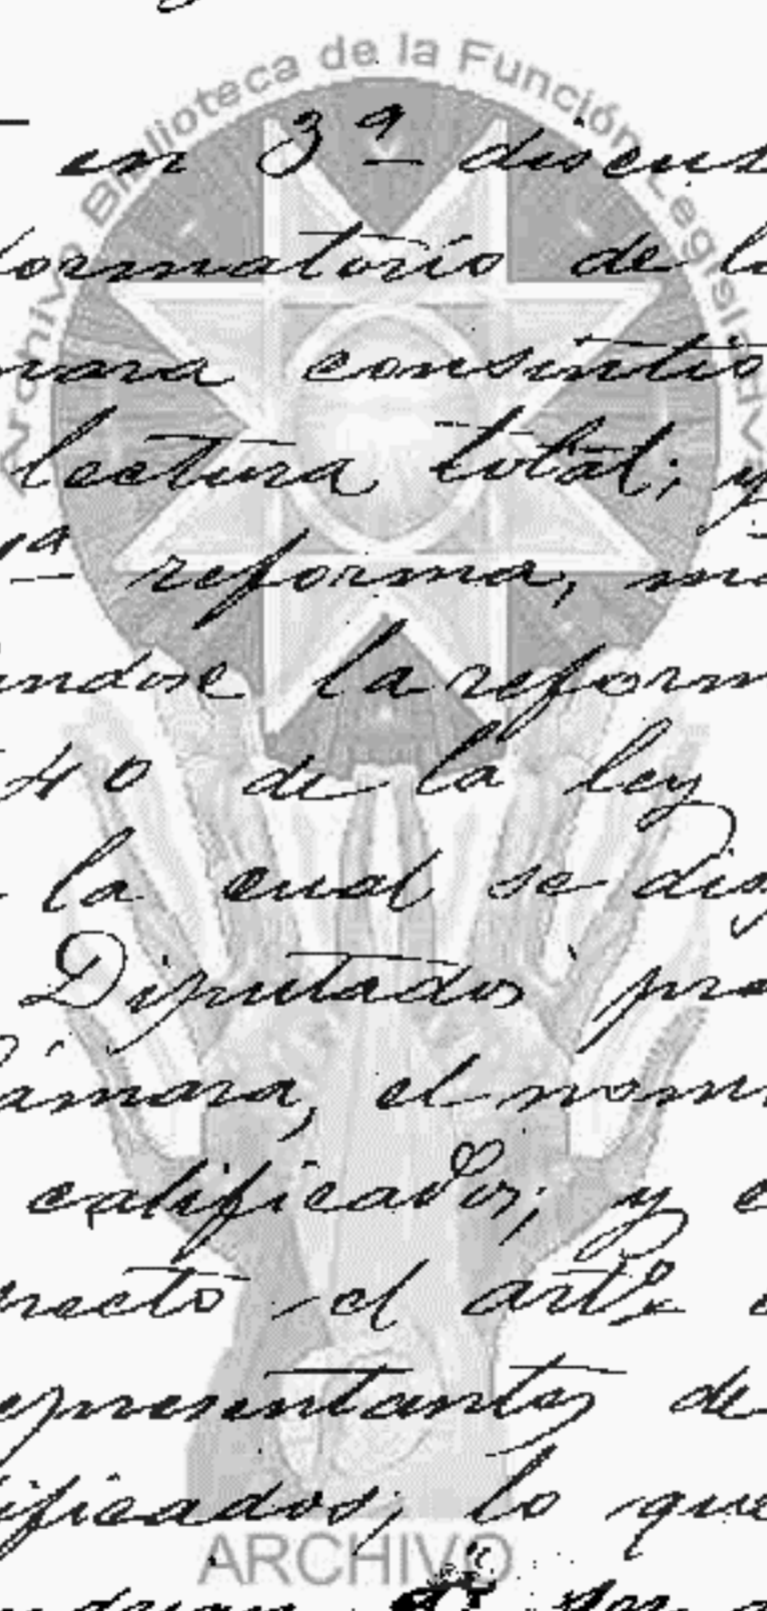 Archivo Biblioteca de la Función Legislativa
en 3ª discus
formatorio de l
mara consintió
lectura total; y
1ª reforma,
ándose la reform
40 de la ley
la cual se dis
Diputados pre
Cámara, el nom
calificados; y e
recto el artº
epresentantes de
ificados; lo que
ARCHIVO